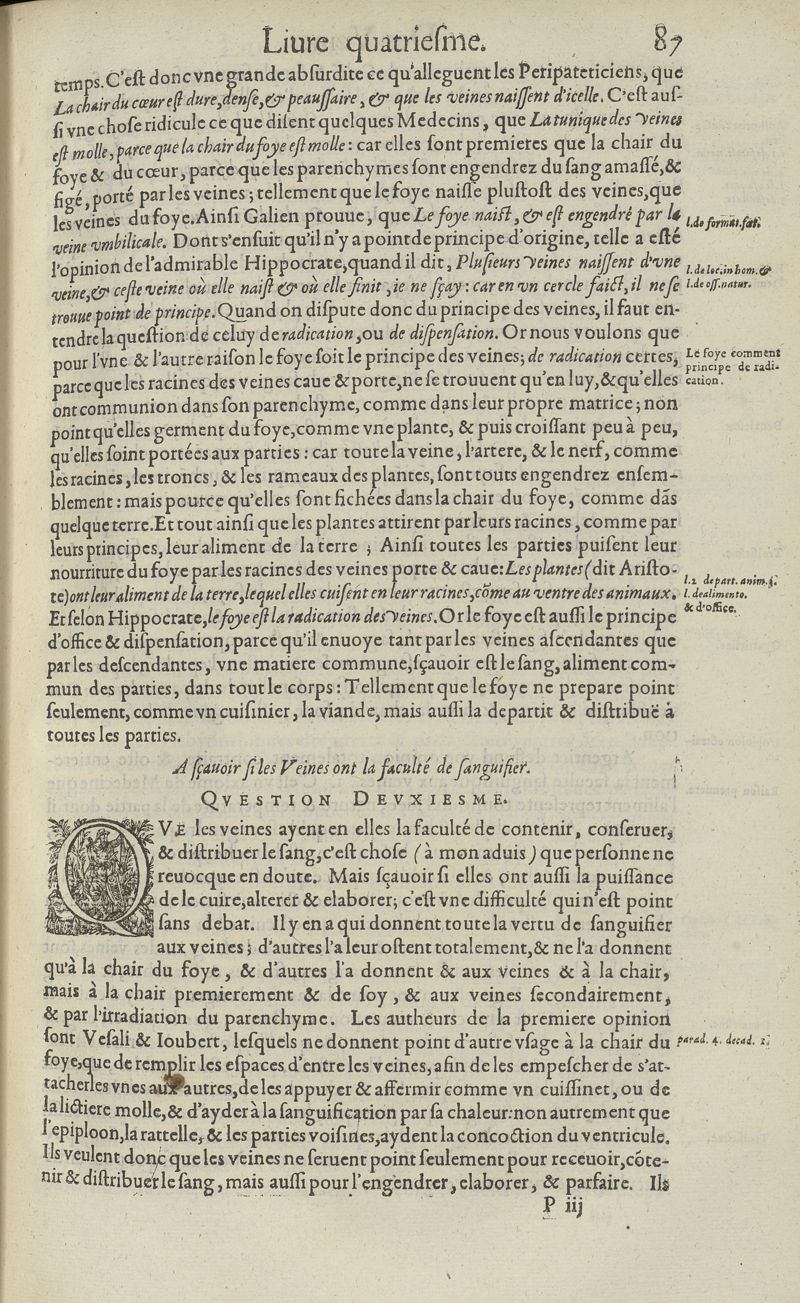 Liure quatriesme. 87
temps. C'est donc vne grande absurdite ce qu'alleguent les Peripateticiens, que
La chair du cœur est dure, dense, & peaussaire, & que les veines naissent d'icelle. C'est aus-
si vne chose ridicule ce que disent quelques Medecins, que La tunique des veines
est molle, parce que la chair du foye est molle : car elles sont premieres que la chair du
foye & du cœur, parce que les parenchymes sont engendrez du sang amassé, &
figé, porté par les veines ; tellement que le foye naisse plustost des veines, que
les veines du foye. Ainsi Galien prouue, que Le foye naist, & est engendré par la
l. de format. fœt.
veine vmbilicale. Dont s'ensuit qu'il n'y a point de principe d'origine, telle a esté
l'opinion de l'admirable Hippocrate, quand il dit, Plusieurs veines naissent d'vne
l. de loc. in hom. &
veine, & ceste veine où elle naist & où elle finit, ie ne sçay : car en vn cercle faict, il ne se
l. de oss. natur.
trouue point de principe. Quand on dispute donc du principe des veines, il faut en-
tendre la question de celuy de radication, ou de dispensation. Or nous voulons que
pour l'vne & l'autre raison le foye soit le principe des veines; de radication certes,
Le foye comment
principe de radi-
parce que les racines des veines caue & porte, ne se trouuent qu'en luy, & qu'elles
cation.
ont communion dans son parenchyme, comme dans leur propre matrice ; non
point qu'elles germent du foye, comme vne plante, & puis croissant peu à peu,
qu'elles soint portées aux parties : car toute la veine, l'artere, & le nerf, comme
les racines, les troncs, & les rameaux des plantes, sont touts engendrez ensem-
blement : mais pource qu'elles sont fichées dans la chair du foye, comme dãs
quelque terre. Et tout ainsi que les plantes attirent par leurs racines, comme par
leurs principes, leur aliment de la terre ; Ainsi toutes les parties puisent leur
nourriture du foye par les racines des veines porte & caue: Les plantes (dit Aristo-
l. 2 de part. anim. 4.
te) ont leur aliment de la terre, lequel elles cuisent en leur racines, cõme au ventre des animaux.
l. de alimento.
Et selon Hippocrate, le foye est la radication des veines. Or le foye est aussi le principe
& d'office.
d'office & dispensation, parce qu'il enuoye tant par les veines ascendantes que
par les descendantes, vne matiere commune, sçauoir est le sang, aliment com-
mun des parties, dans tout le corps : Tellement que le foye ne prepare point
seulement, comme vn cuisinier, la viande, mais aussi la departit & distribuë à
toutes les parties.
A sçauoir si les Veines ont la faculté de sanguifier.
QVESTION DEVXIESME.
QVE les veines ayent en elles la faculté de contenir, conseruer,
& distribuer le sang, c'est chose (à mon aduis) que personne ne
reuocque en doute. Mais sçauoir si elles ont aussi la puissance
de le cuire, alterer & elaborer; c'est vne difficulté qui n'est point
sans debat. Il y en a qui donnent toute la vertu de sanguifier
aux veines ; d'autres l'a leur ostent totalement, & ne l'a donnent
qu'à la chair du foye, & d'autres l'a donnent & aux veines & à la chair,
mais à la chair premierement & de soy, & aux veines secondairement,
& par l'irradiation du parenchyme. Les autheurs de la premiere opinion
sont Vesali & Ioubert, lesquels ne donnent point d'autre vsage à la chair du
parad. 4. decad. 1.
foye, que de remplir les espaces d'entre les veines, afin de les empescher de s'at-
tacher les vnes aux autres, de les appuyer & affermir comme vn cuissinet, ou de
la lictiere molle, & d'ayder à la sanguification par sa chaleur: non autrement que
l'epiploon, la rattelle, & les parties voisines, aydent la concoction du ventricule.
Ils veulent donc que les veines ne seruent point seulement pour receuoir, cõte-
nir & distribuer le sang, mais aussi pour l'engendrer, elaborer, & parfaire. Ils
P iij